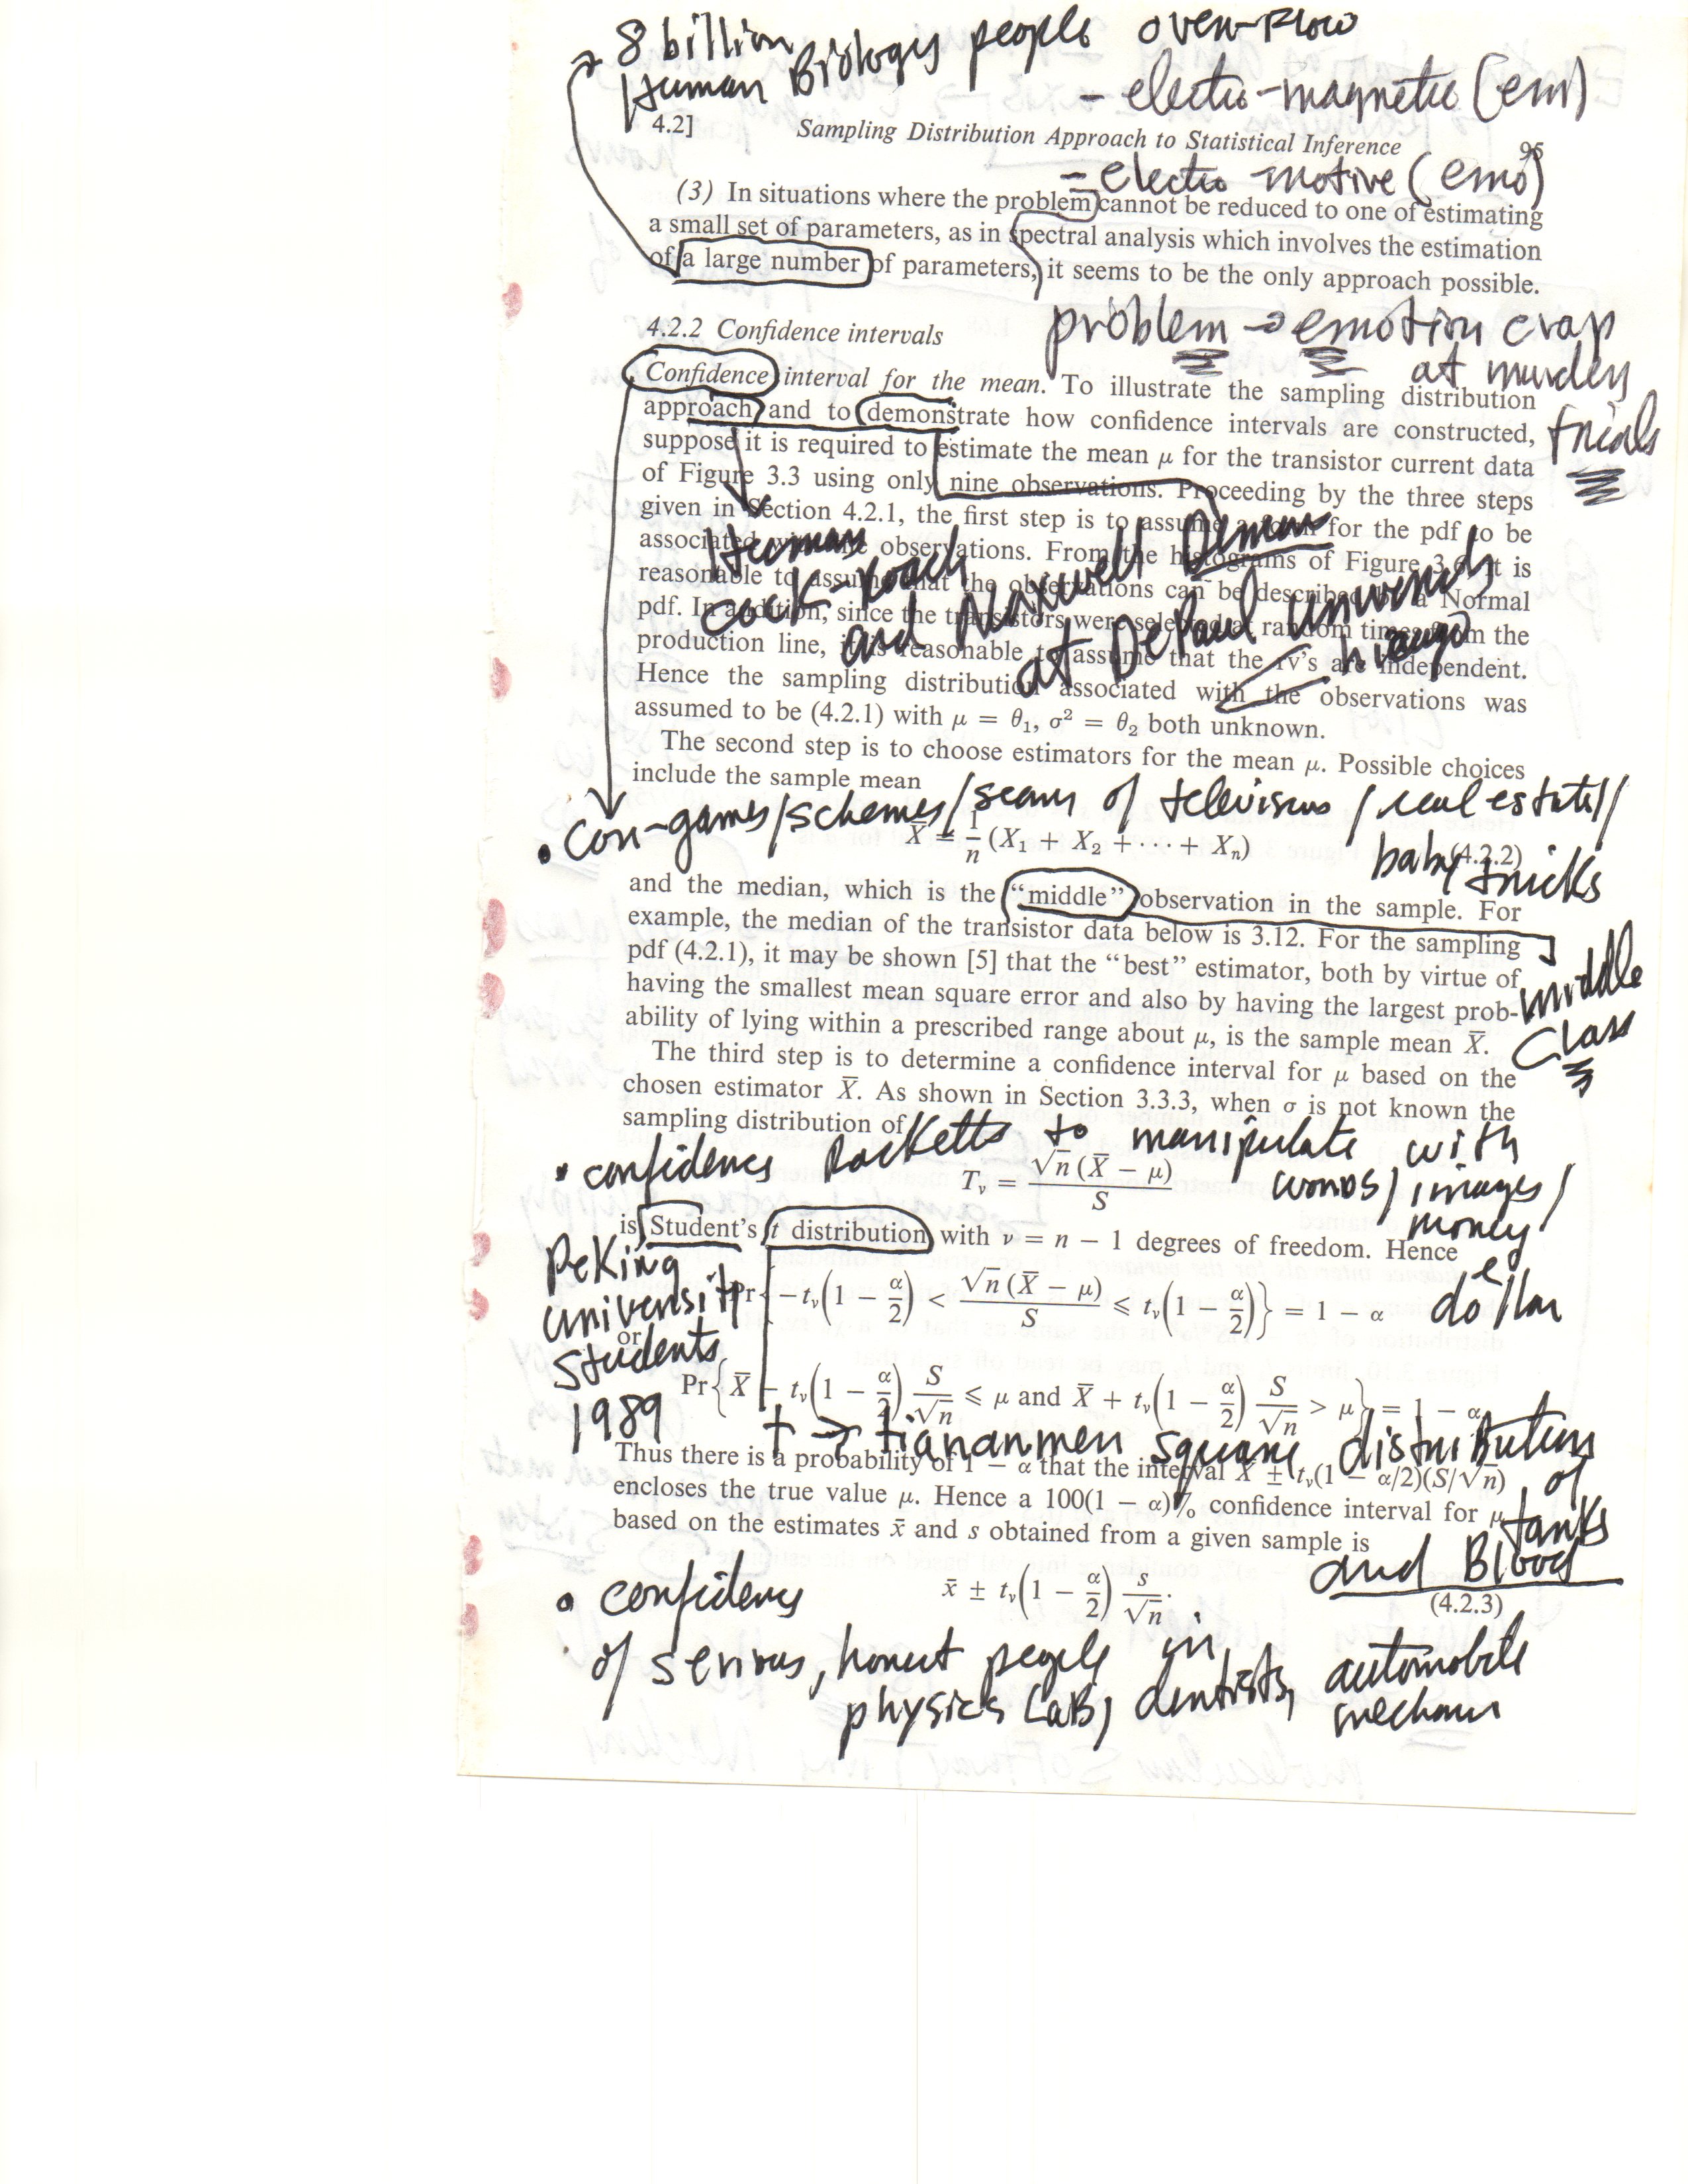 8 billion
Human Biology people over-flow
- electro-magnetic (em)
4.2] Sampling Distribution Approach to Statistical Inference 95
= electro motive (emo)
(3) In situations where the problem cannot be reduced to one of estimating
a small set of parameters, as in spectral analysis which involves the estimation
of a large number of parameters, it seems to be the only approach possible.
problem → emotion crap
at murder
trials
4.2.2 Confidence intervals
Confidence interval for the mean. To illustrate the sampling distribution
approach and to demonstrate how confidence intervals are constructed,
suppose it is required to estimate the mean μ for the transistor current data
of Figure 3.3 using only nine observations. Proceeding by the three steps
given in Section 4.2.1, the first step is to assume a form for the pdf to be
associated with the observations. From the histograms of Figure 3.6 it is
reasonable to assume that the observations can be described by a Normal
pdf. In addition, since the transistors were selected at random times from the
production line, it is reasonable to assume that the rv's are independent.
Hence the sampling distribution associated with the observations was
assumed to be (4.2.1) with μ = θ₁, σ² = θ₂ both unknown.
Human
cock-roach
and Maxwell Demon
at DePaul University
The second step is to choose estimators for the mean μ. Possible choices
include the sample mean
• con-games/schemes/scams of televisions / real estate//
baby tricks
X̄ = 1/n (X₁ + X₂ + ··· + Xₙ) (4.2.2)
and the median, which is the "middle" observation in the sample. For
example, the median of the transistor data below is 3.12. For the sampling
pdf (4.2.1), it may be shown [5] that the "best" estimator, both by virtue of
having the smallest mean square error and also by having the largest prob-
ability of lying within a prescribed range about μ, is the sample mean X̄.
middle
class
The third step is to determine a confidence interval for μ based on the
chosen estimator X̄. As shown in Section 3.3.3, when σ is not known the
sampling distribution of
• confidence Racketts to manipulate with
words/images/
money/
dollar
Tᵥ = √n (X̄ − μ) / S
is Student's t distribution with ν = n − 1 degrees of freedom. Hence
Peking
university
students
1989
Pr{−tᵥ(1 − α/2) < √n (X̄ − μ)/S ⩽ tᵥ(1 − α/2)} = 1 − α
or
Pr{X̄ − tᵥ(1 − α/2) S/√n ⩽ μ and X̄ + tᵥ(1 − α/2) S/√n > μ} = 1 − α
t → tiananmen square distribution
of
tanks
and Blood
Thus there is a probability of 1 − α that the interval X̄ ± tᵥ(1 − α/2)(S/√n)
encloses the true value μ. Hence a 100(1 − α)% confidence interval for μ
based on the estimates x̄ and s obtained from a given sample is
x̄ ± tᵥ(1 − α/2) s/√n. (4.2.3)
• confidence
of serious, honest people in
physics LaB, dentists, automobile